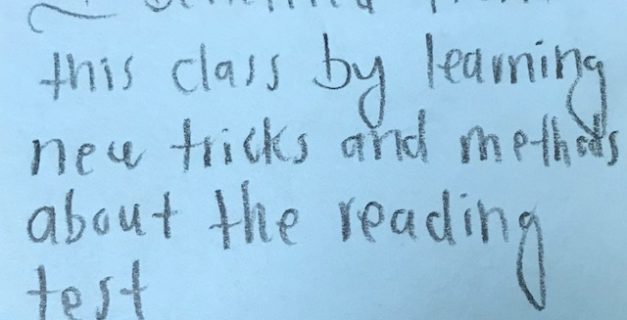 this class by learning
new tricks and methods
about the reading
test